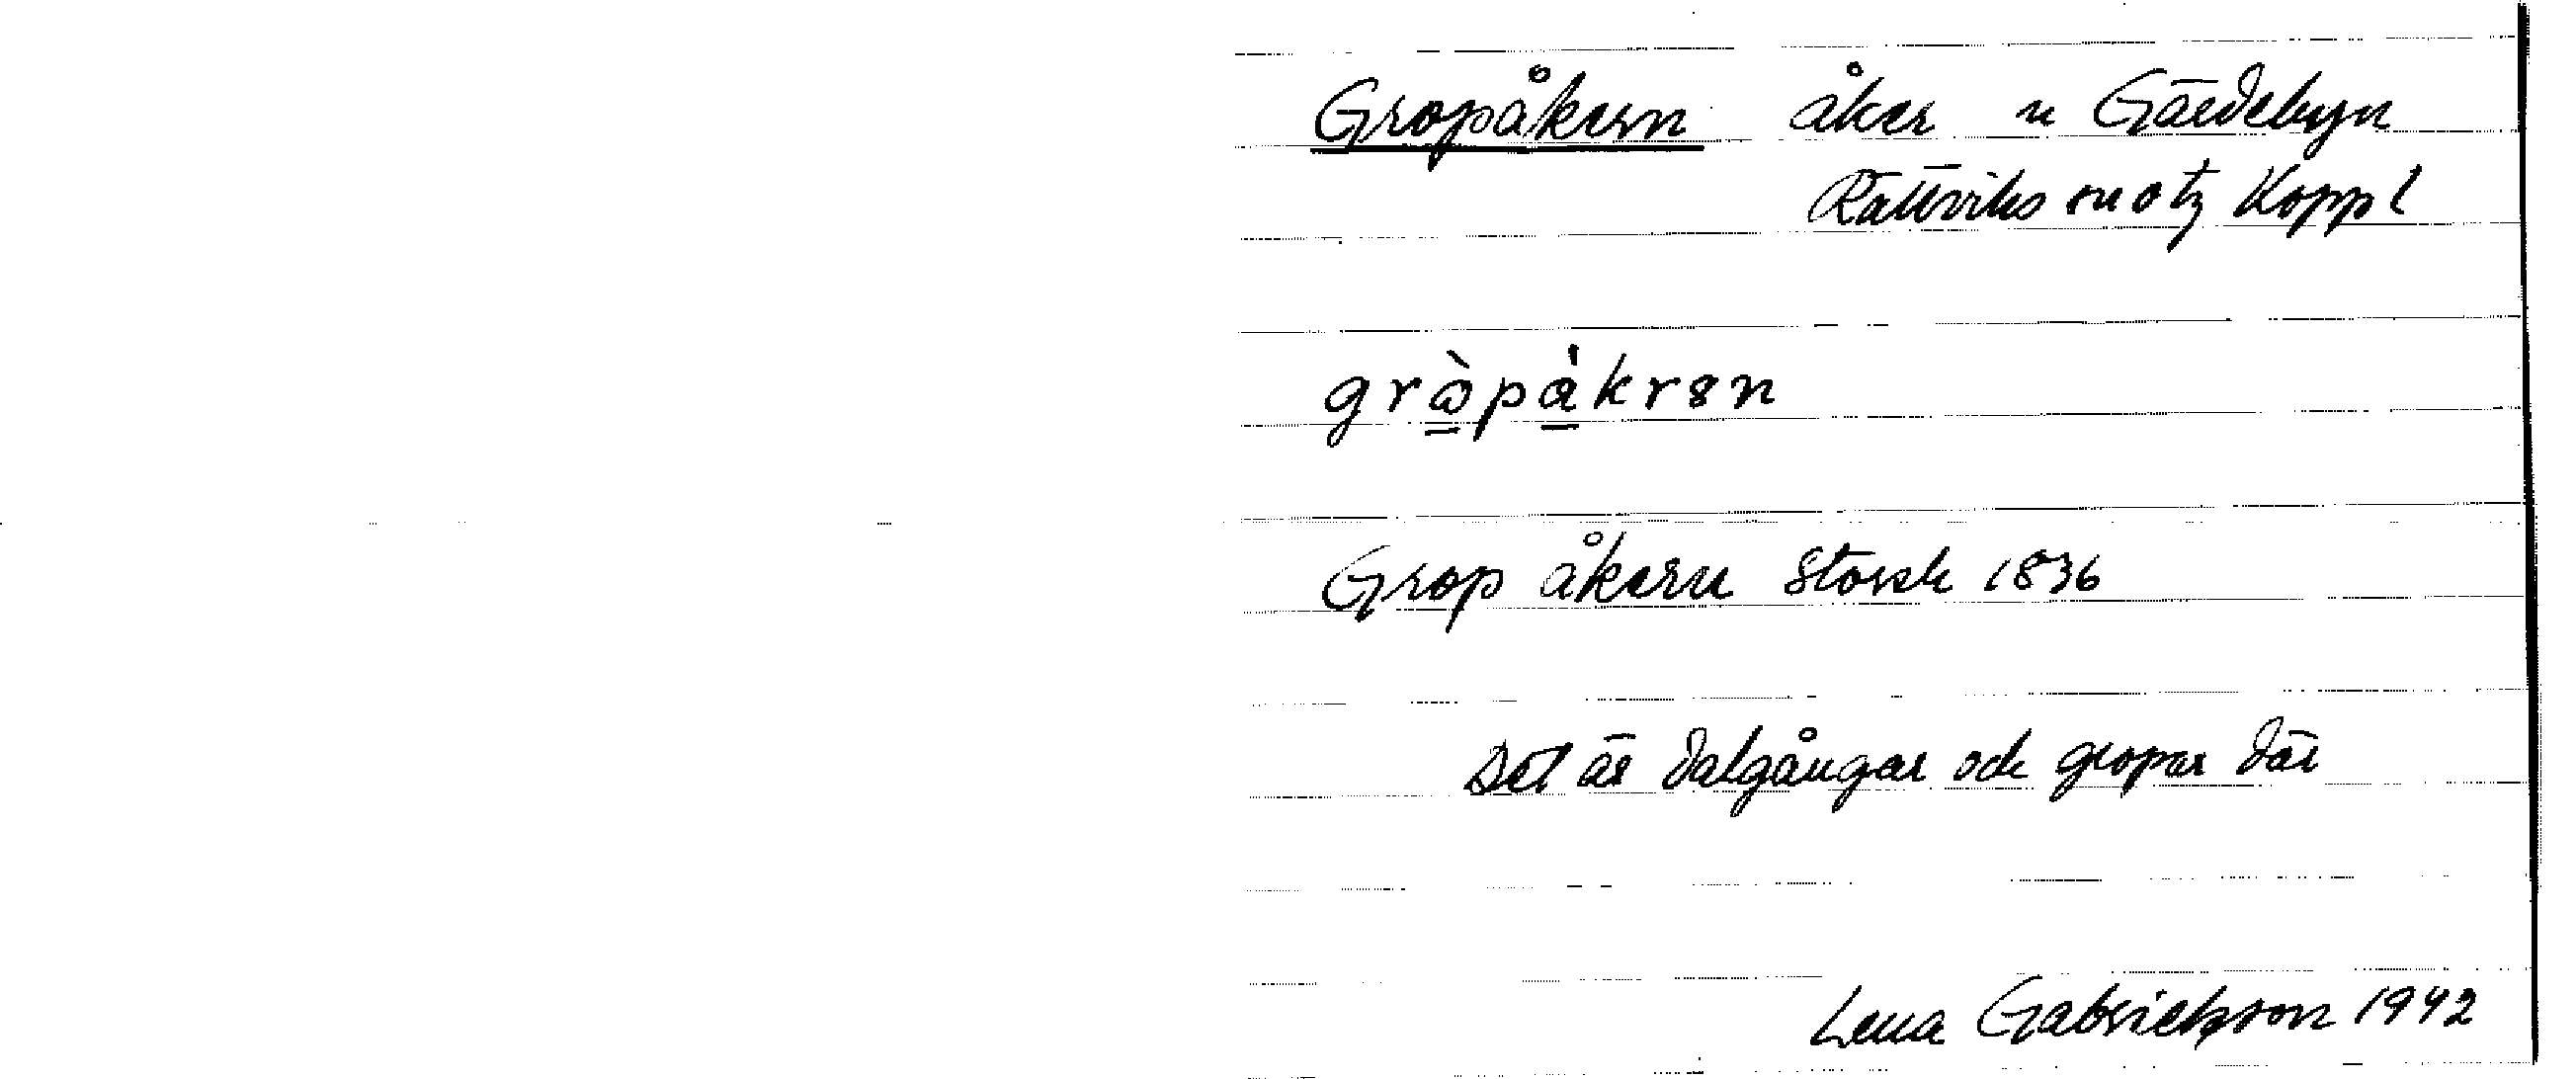 Gropåkern åker n Gärdebyn
Rättviks sn o tg Kopp l
gròpàkrən
Grop åkern Storsk 1836
Det är dalgångar och gropar där
Lena Gabrielsson 1942